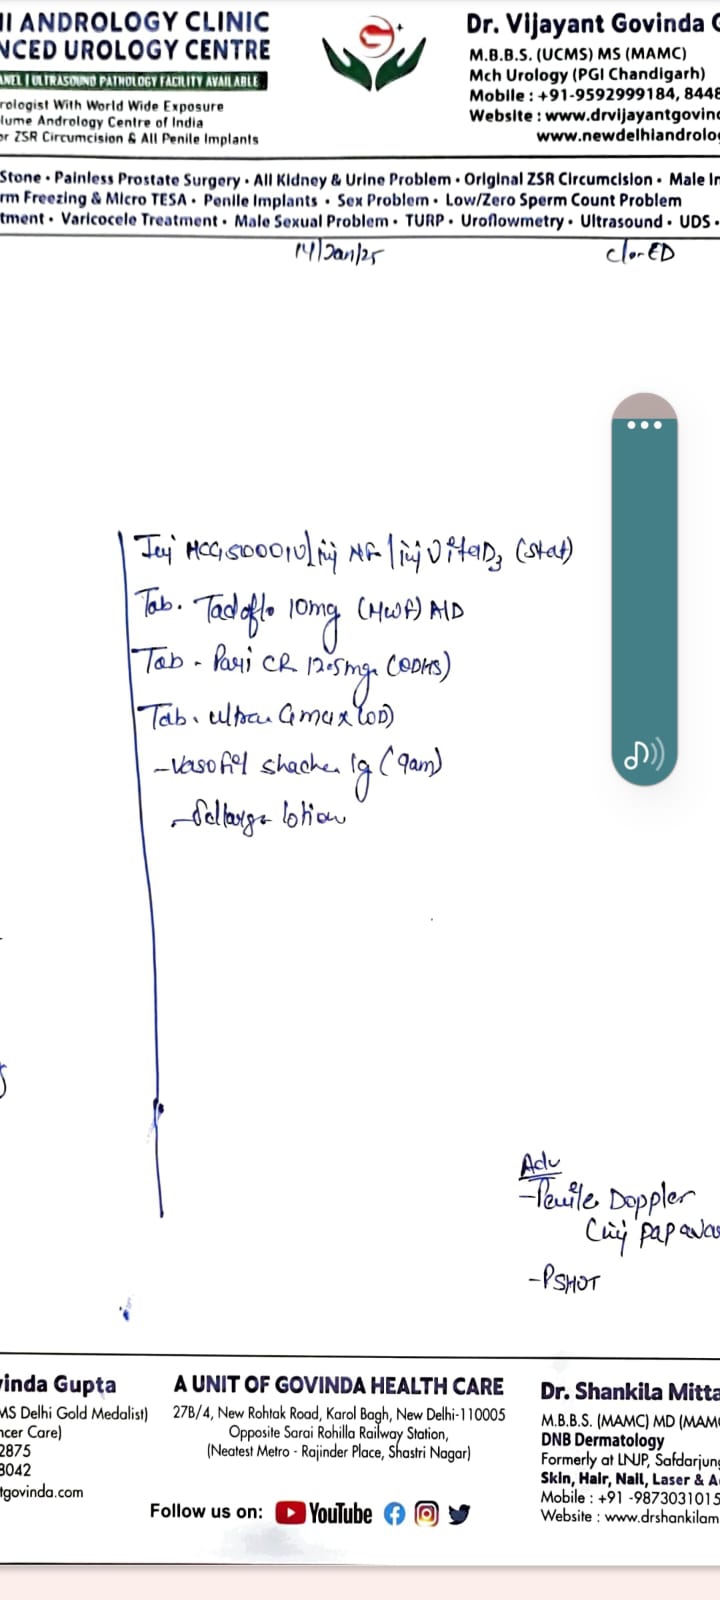 II ANDROLOGY CLINIC
NCED UROLOGY CENTRE
ANEL | ULTRASOUND PATHOLOGY FACILITY AVAILABLE
rologist With World Wide Exposure
lume Andrology Centre of India
or ZSR Circumcision & All Penile Implants
Dr. Vijayant Govinda G
M.B.B.S. (UCMS) MS (MAMC)
Mch Urology (PGI Chandigarh)
Mobile : +91-9592999184, 8448
Website : www.drvijayantgovind
www.newdelhiandrolo
Stone • Painless Prostate Surgery • All Kidney & Urine Problem • Original ZSR Circumcision • Male In
rm Freezing & Micro TESA • Penile Implants • Sex Problem • Low/Zero Sperm Count Problem
tment • Varicocele Treatment • Male Sexual Problem • TURP • Uroflowmetry • Ultrasound • UDS •
14/Jan/25
c/o-ED
Inj HCG 5000 IU/inj NF/inj Vita D3 (Stat)
Tab. Tadaflo 10mg (MWF) A/D
Tab - Pari CR 12.5mg (ODHS)
Tab. Ultra Gmax (OD)
- Vasofiel shache 1g (9am)
lotion
Adv
- Penile Doppler
(inj papav
- PSHOT
vinda Gupta
MS Delhi Gold Medalist)
ncer Care)
2875
8042
tgovinda.com
A UNIT OF GOVINDA HEALTH CARE
27B/4, New Rohtak Road, Karol Bagh, New Delhi-110005
Opposite Sarai Rohilla Railway Station,
(Neatest Metro - Rajinder Place, Shastri Nagar)
Follow us on: YouTube
Dr. Shankila Mitta
M.B.B.S. (MAMC) MD (MAM
DNB Dermatology
Formerly at LNJP, Safdarjung
Skin, Hair, Nail, Laser & A
Mobile : +91 -9873031015
Website : www.drshankilam